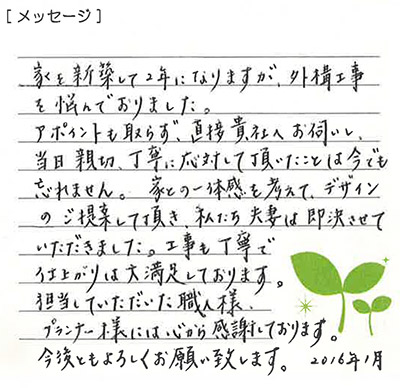 [メッセージ]
家を新築して2年になりますが、外構工事
を悩んでおりました。
アポイントも取らず、直接貴社へお伺いし、
当日親切、丁寧に応対して頂いたことは今でも
忘れません。家との一体感を考えて、デザイン
のご提案して頂き、私たち夫妻は即決させて
いただきました。工事も丁寧で
仕上がりは大満足しております。
担当していただいた職人様、
プランナー様には心から感謝しております。
今後ともよろしくお願い致します。 2016年1月